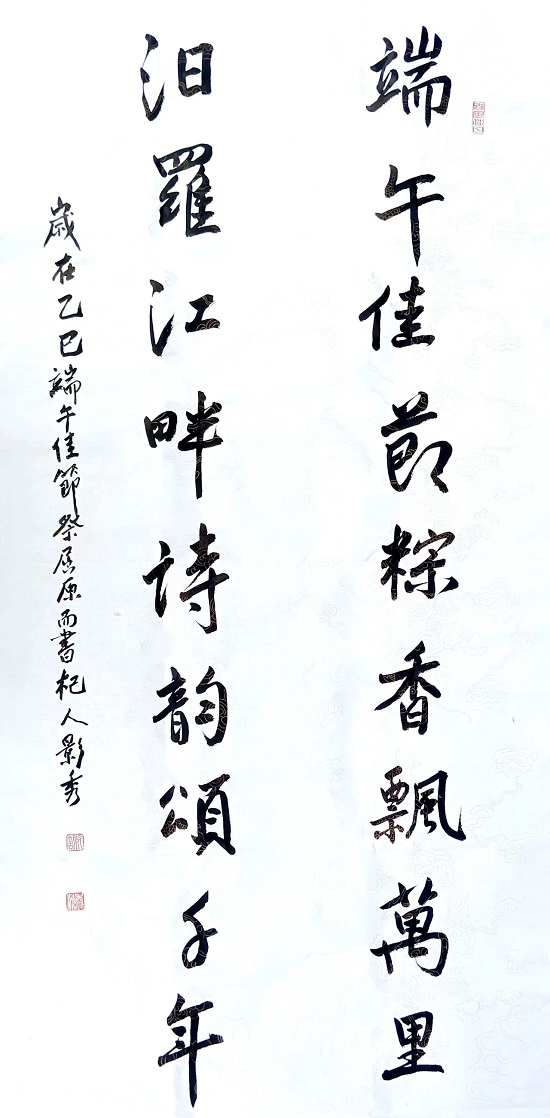 端午佳節粽香飄萬里
汨羅江畔詩韵頌千年
歲在乙巳端午佳節祭屈原而書杞人影秀